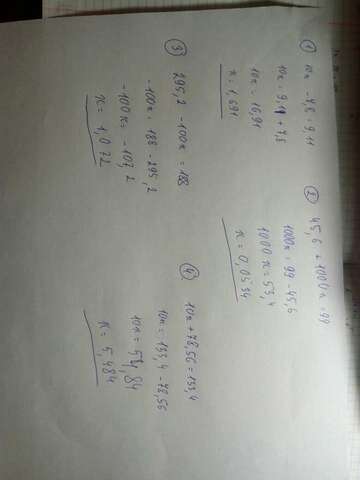 ① 10x - 7,8 = 9,11
10x = 9,11 + 7,8
10x = 16,91
x = 1,691
② 45,6 + 1000x = 99
1000x = 99 - 45,6
1000x = 53,4
x = 0,0534
③ 295,2 - 100x = 188
-100x = 188 - 295,2
-100x = -107,2
x = 1,072
④ 10x + 78,56 = 133,4
10x = 133,4 - 78,56
10x = 54,84
x = 5,484